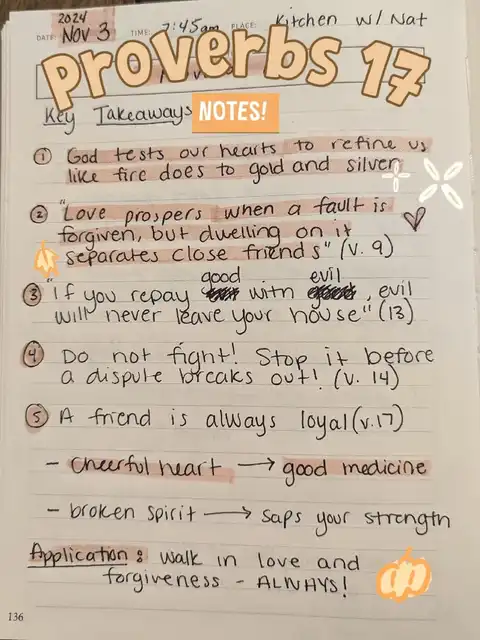 2024
DATE: Nov 3 TIME: 7:45am PLACE: Kitchen w/ Nat
Proverbs 17
Key Takeaways NOTES!
① God tests our hearts to refine us
like fire does to gold and silver
② "Love prospers when a fault is
forgiven, but dwelling on it
separates close friends" (v. 9)
good evil
③ "If you repay with , evil
will never leave your house" (13)
④ Do not fight! Stop it before
a dispute breaks out! (v. 14)
⑤ A friend is always loyal (v.17)
- cheerful heart → good medicine
- broken spirit → saps your strength
Application: walk in love and
forgiveness - ALWAYS!
136